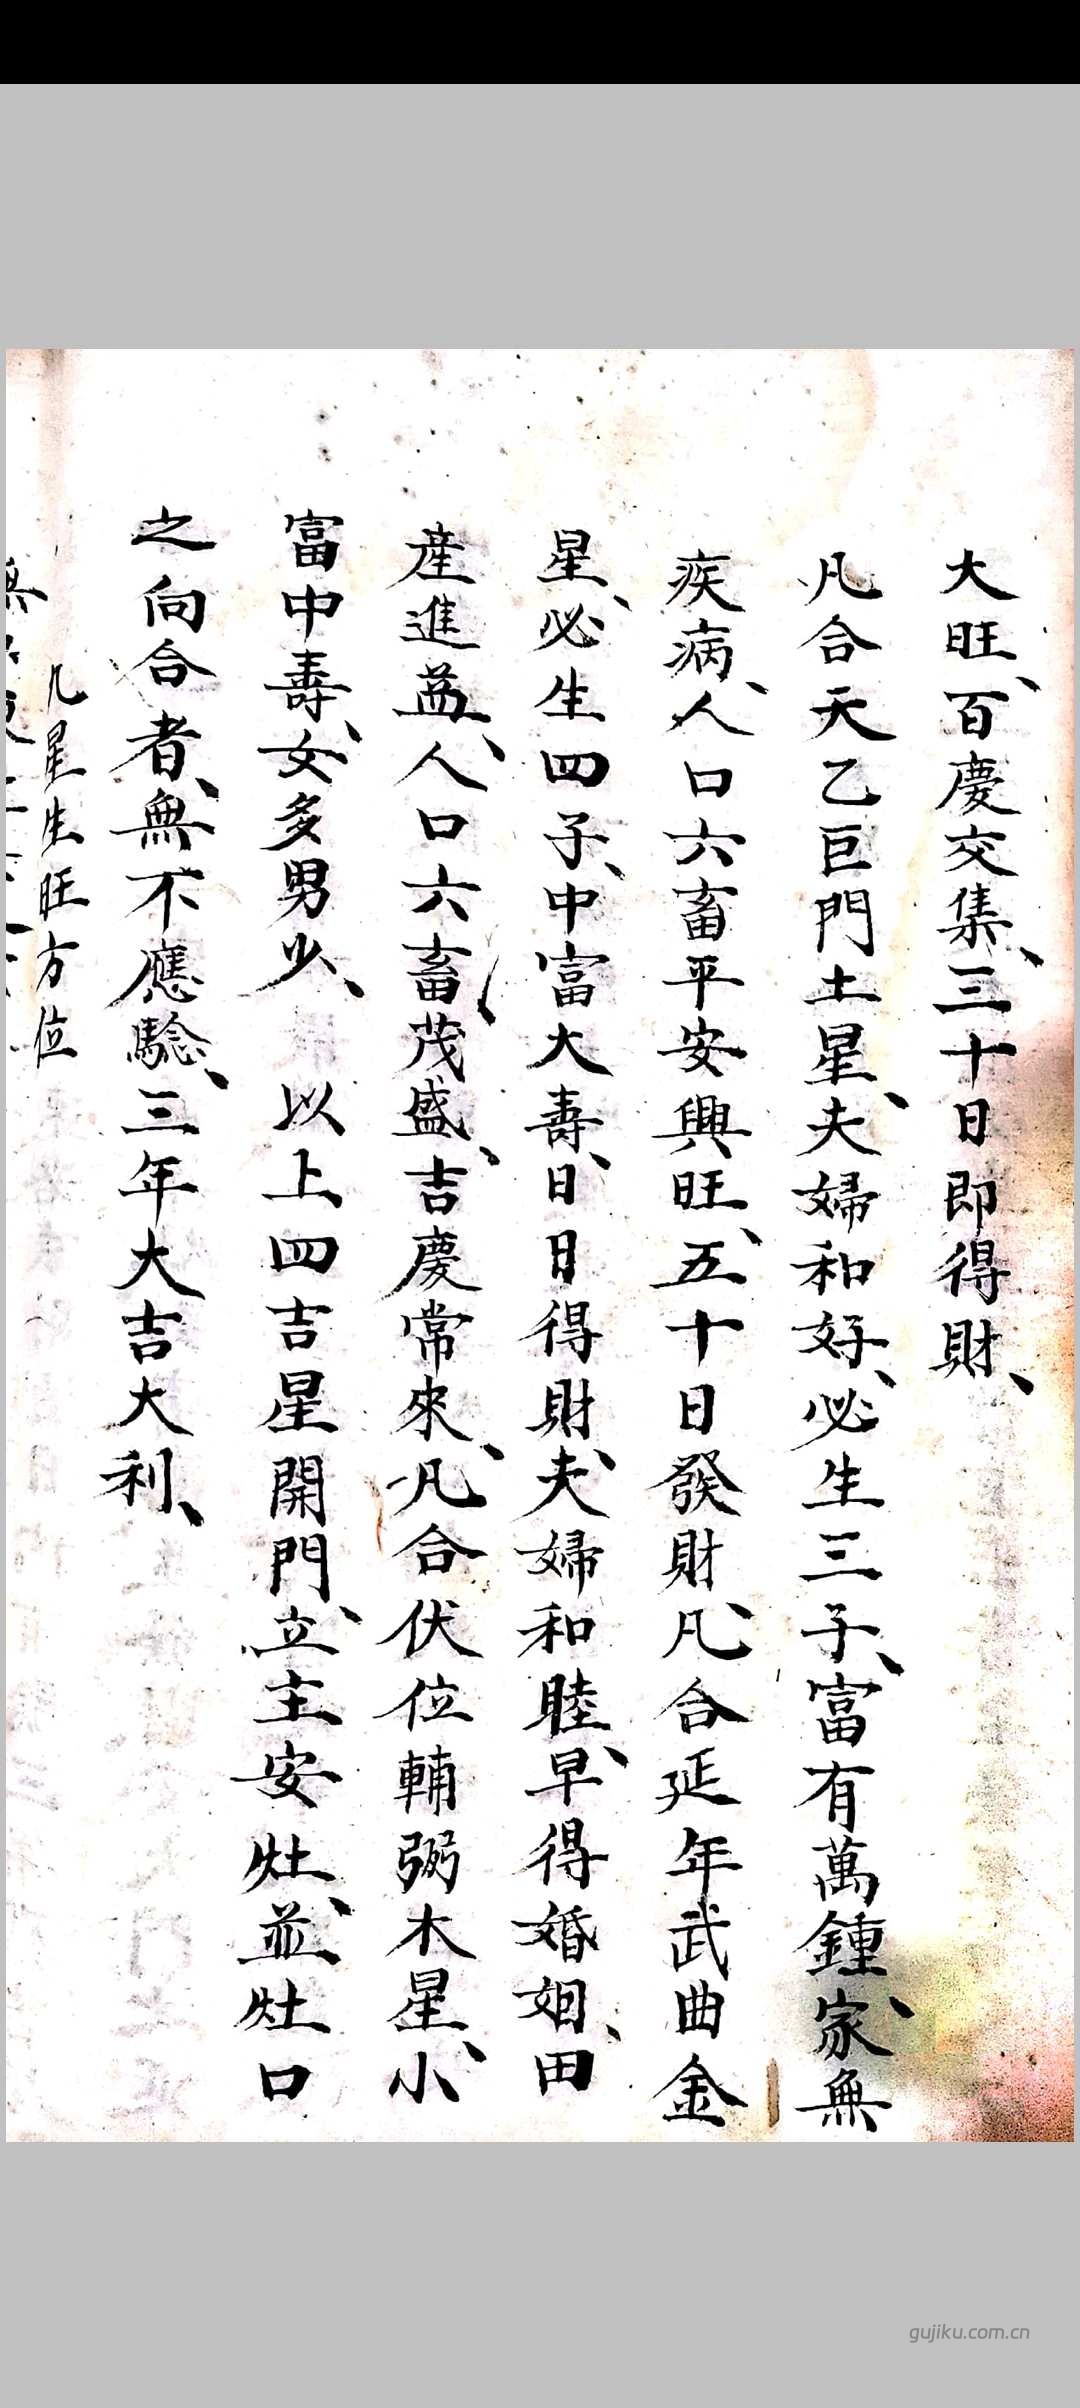 大旺、百慶交集、三十日即得財、
凡合天乙巨門土星、夫婦和好、必生三子、富有萬鍾、家無
疾病、人口六畜平安興旺、五十日發財、凡合延年武曲金
星、必生四子、中富大壽、日日得財、夫婦和睦、早得婚姻、田
産進益、人口六畜茂盛、吉慶常來、凡合伏位輔弼木星、小
富中壽、女多男少、以上四吉星開門、立主安灶、並灶口
之向合者、無不應驗、三年大吉大利、
凡星生旺方位
gujiku.com.cn